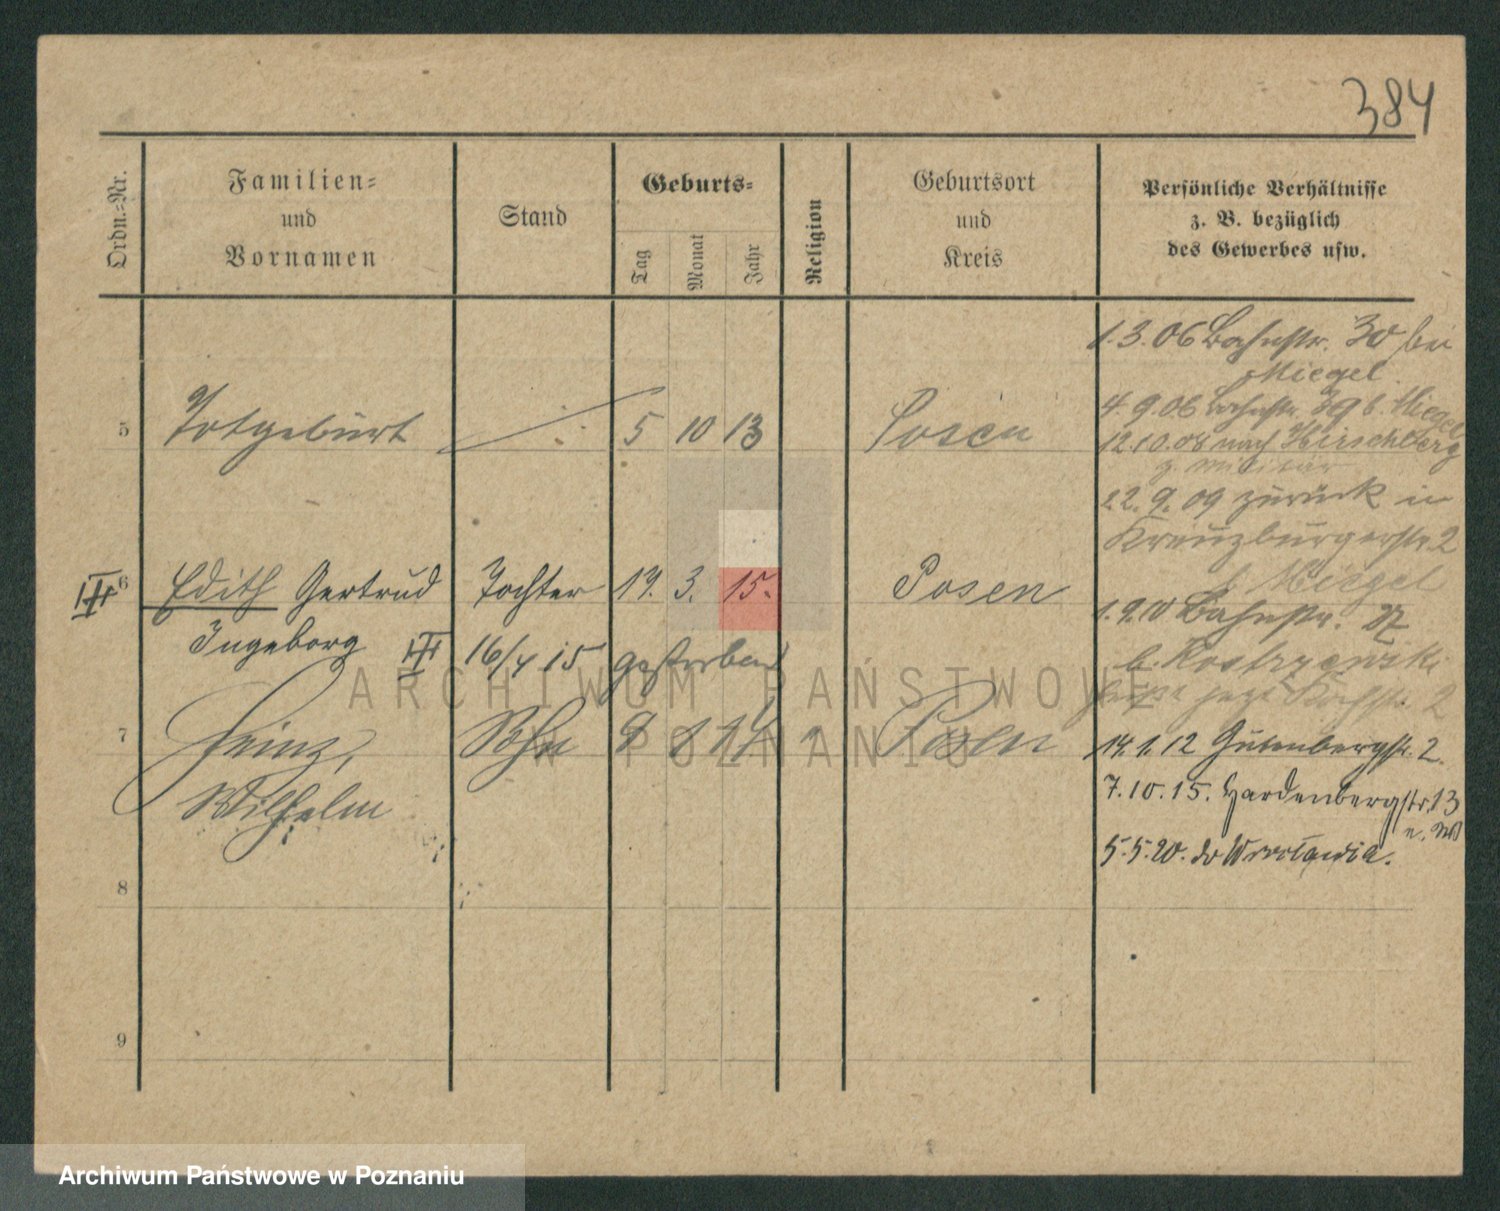 384
Ordn.-Nr.
Familien-
und
Vornamen
Stand
Geburts-
Tag
Monat
Jahr
Religion
Geburtsort
und
Kreis
Persönliche Verhältnisse
z. B. bezüglich
des Gewerbes usw.
1.3.06 Bahnstr. 30 bei
Miegel
4.9.06 Bahnstr. 39 b. Miegel
5 Totgeburt 5 10 13 Posen
12.10.08 nach Hirschberg
z. Militär
22.9.09 zurück in
Kreuzburgerstr. 2
b. Miegel
6 Edith Gertrud Tochter 19. 3. 15. Posen
1.9.10 Bahnstr.
Ingeborg III 16/4 15 gestorben
b.
ARCHIWUM PAŃSTWOWE
W POZNANIU
jetzt 2
7 Heinz, Sohn Posen
14.1.12 Gutenbergstr. 2.
Wilhelm
7.10.15. Hardenbergstr. 13
5.5.20. do
8
9
Archiwum Państwowe w Poznaniu